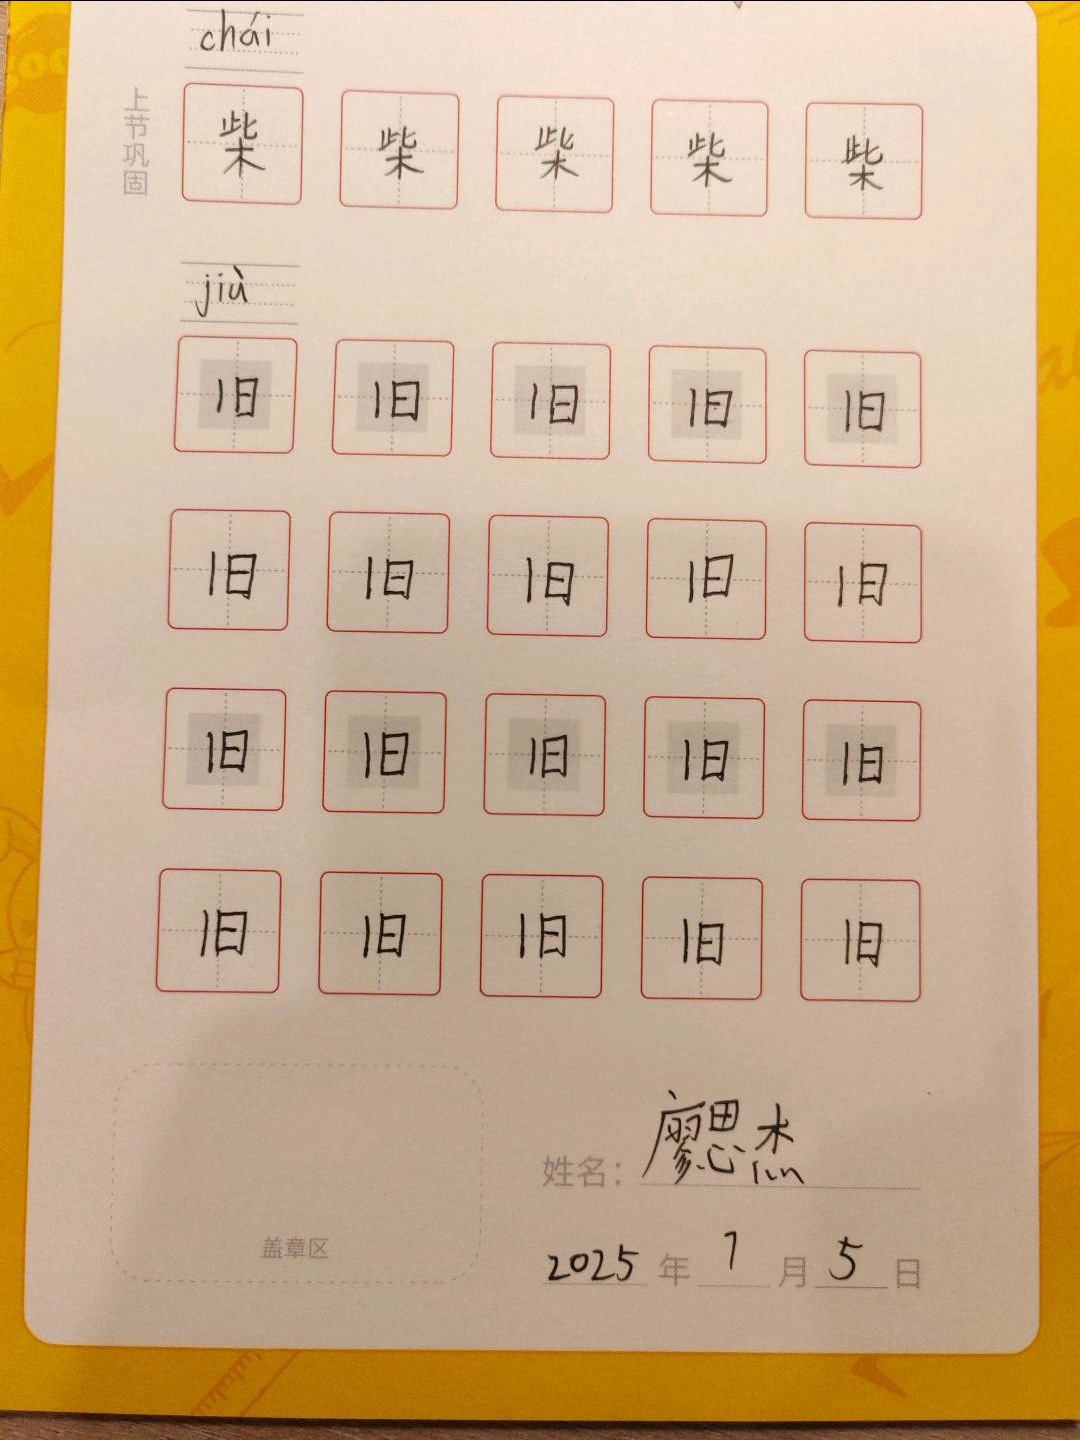 chái
上节巩固
柴 柴 柴 柴 柴
jiù
旧 旧 旧 旧 旧
旧 旧 旧 旧 旧
旧 旧 旧 旧 旧
旧 旧 旧 旧 旧
姓名：廖思杰
盖章区
2025 年 7 月 5 日